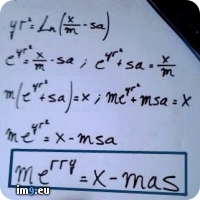 yr² = Ln(x/m - sa)
e^yr² = x/m - sa ; e^yr² + sa = x/m
m(e^yr² + sa) = x ; me^yr² + msa = x
me^yr² = x - msa
me^rry = x - mas
im9.eu